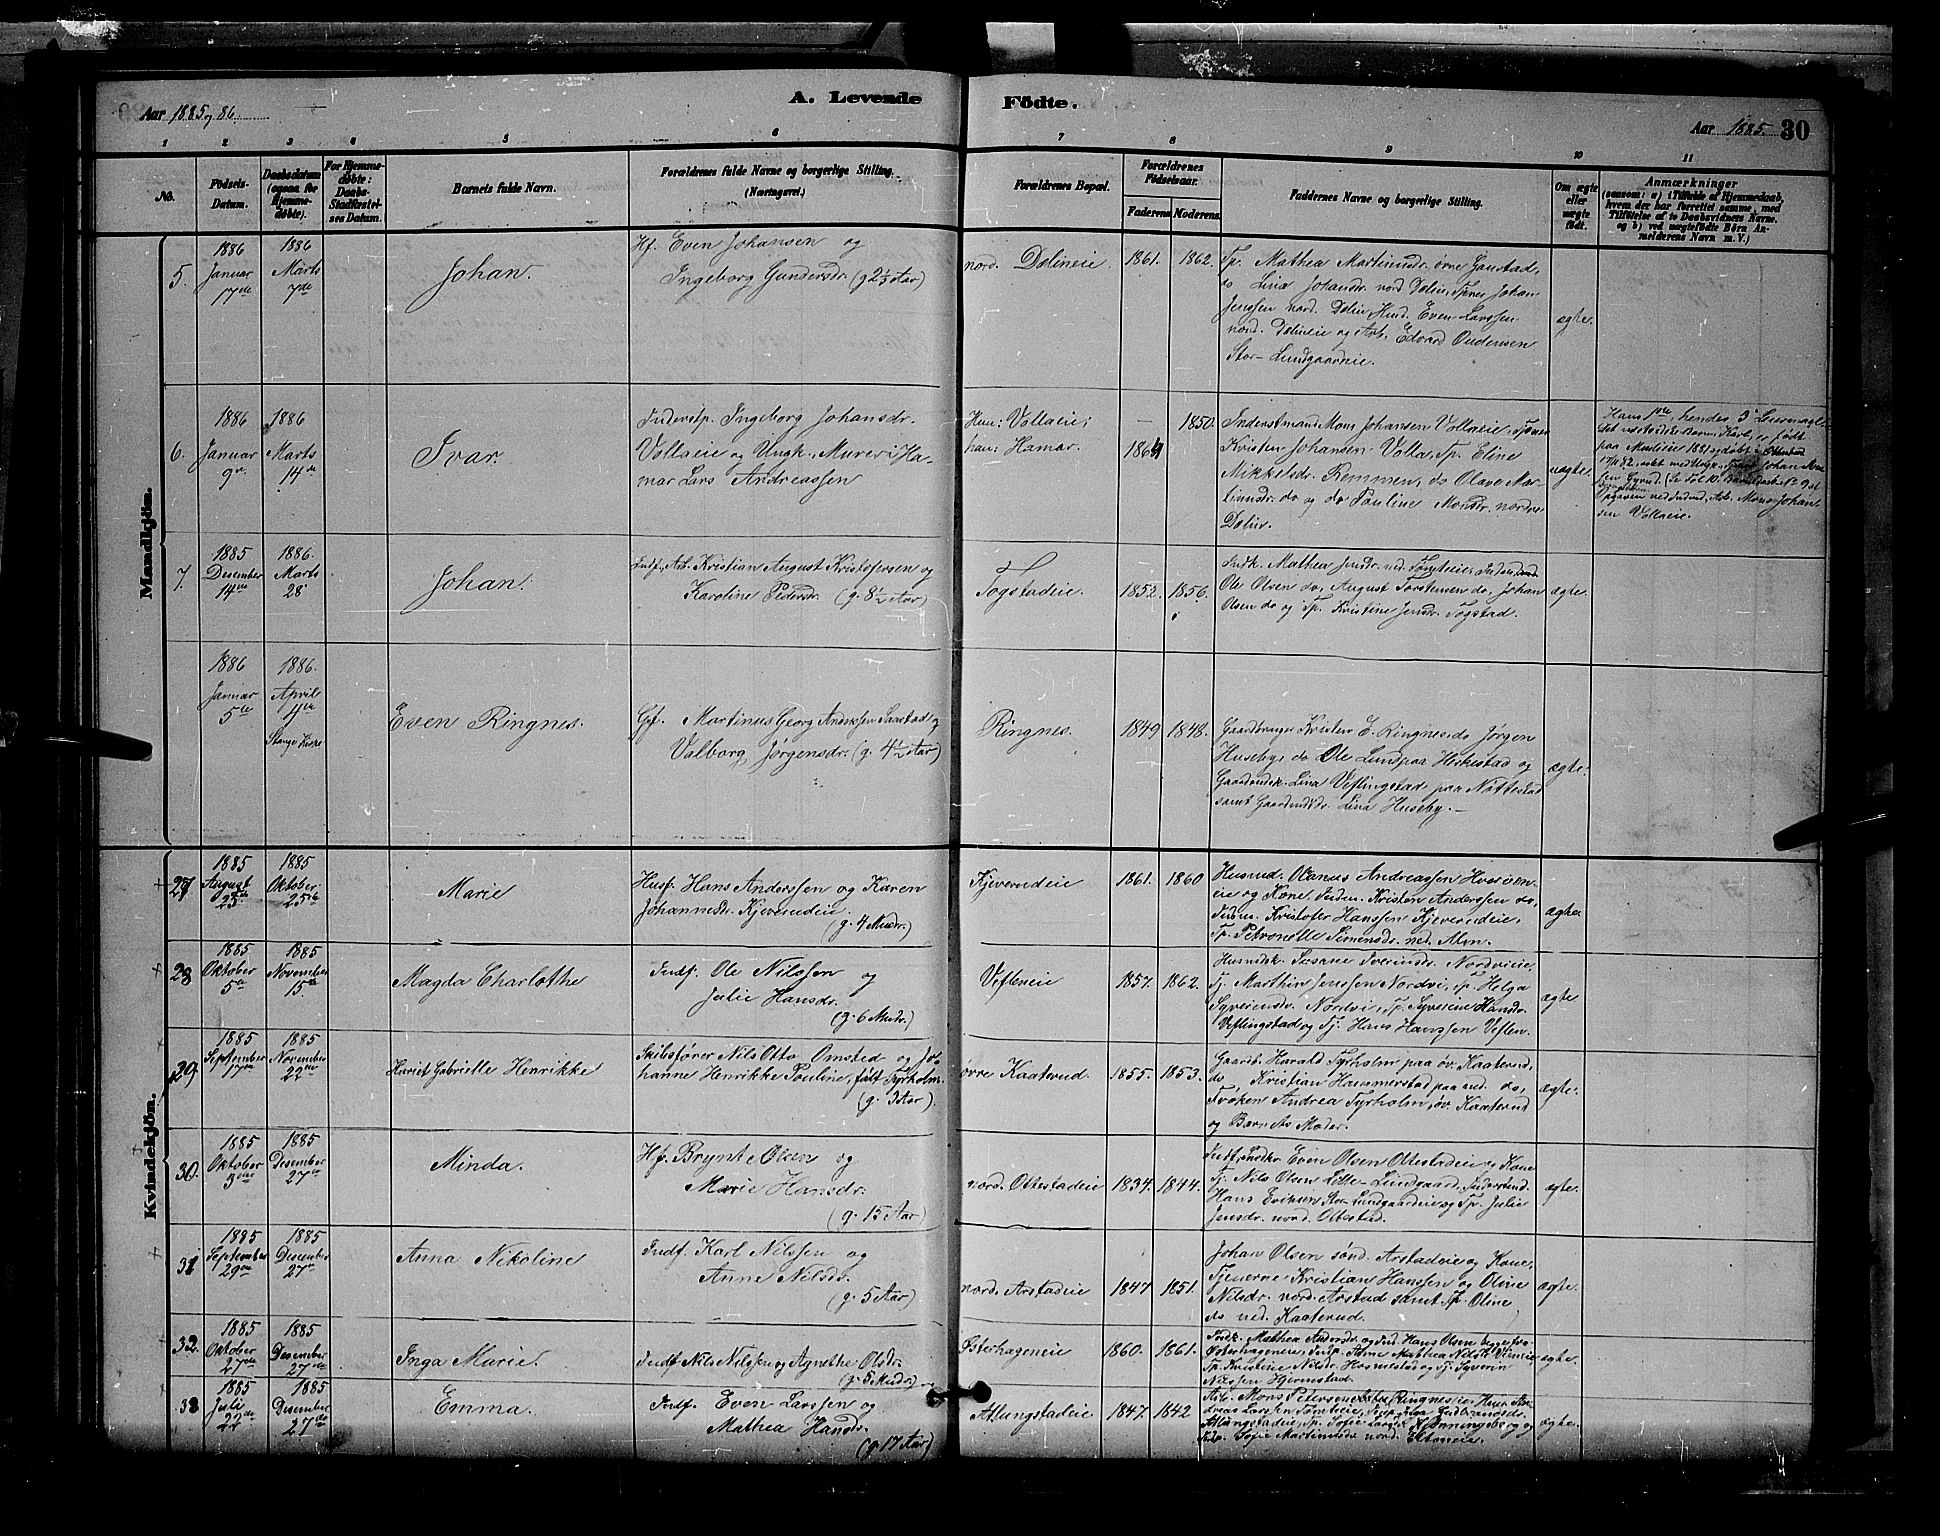 Aar 1885 og 86.
A. Levende
Födte.
Aar 1885.
30
1 2 3 4 5 6 7 8 9 10 11
No.
Födsels-
Datum.
Daabsdatum
(ogsaa for
Hjemme-
döbte).
For Hjemme-
döbte:
Daabs-
Stadfæstel-
ses Datum.
Barnets fulde Navn.
Forældrenes fulde Navne og borgerlige Stilling.
(Næringsvei.)
Forældrenes Bopæl.
Forældrenes
Födselsaar.
Faderens.
Moderens.
Faddernes Navne og borgerlige Stilling.
Om ægte
eller
uægte
födt.
Anmærkninger
(saasom: a) i Tilfælde af Hjemmedaab,
hvem der har forrettet samme, med
Tilföielse af to Daabsvidners Navne.
og b) ved uægtefödte Börn An-
melderens Navn m. V.)
Mandkjön.
5.
1886
Januar
17de
1886
Marts
7de
Johan.
Hf. Even Johansen og
Ingeborg Gundersdr. (g. 2 1/3 Aar)
nord. Dælineie.
1861.
1862.
Tp. Mathea Martinusdr. øvre Gaustad,
do Lina Johansdr. nord Dælin, Tjener Johan
Jenssen nord. Dælin, Husmd. Even Larssen
nord. Dælineie og Arb. Edvard Oudensen
Stor-Lundgaardeie.
ægte.
6.
1886
Januar
9de
1886
Marts
14de
Ivar.
Inderstp. Ingeborg Johansdr.
Vollaeie og Ungk. Murer i Ha-
mar Lars Andreassen
Hun: Vollaeie;
han: Hamar.
1864
1850.
Inderstmand Mons Johansen Vollaeie, Tjener
Kristen Johansen Volla, Tp. Eline
Mikkelsdr. Remmen, do Olave Mar-
tinusdr. do og do Pauline Monsdr. nordre
Dælin.
uægte.
Hans 1ste, hendes 3die Leiermaal.
paa 1881 og døbt i
sen Vollaeie.
7.
1885
Desember
14de
1886.
Marts
28
Johan.
Indf. Arb. Kristian August Kristofersen og
Karoline Pedersdr. (g. 8 1/2 Aar)
Togstadeie.
1852.
1856.
Indk. Mathea Jensdr. ned.
Ole Olsen do, August Torstensen do, Johan
Olsen do og Tp. Kristine Jensdr. Togstad.
ægte.
1886
Januar
5te
1886.
April
4de
Stange Kirke
Even Ringnes.
Gpf. Martinus Georg Anderssen Saastad og
Valborg Jørgensdr. (g. 4 1/2 Aar)
Ringnes.
1849
1848.
Gaardbruger Kristen E. Ringnes, do Jørgen
Huseby, do Ole Lund paa Herkestad og
Gaardmdsk. Lina Veflingstad paa Nøttestad
samt Gaardmdsdr. Lina Huseby.
ægte.
Kvindekjön.
27
1885
August
25de
1885
Oktober
25de
Marie
Husf. Hans Anderssen og Karen
Johannesdr. Kjeverudeie.
(g. 4 Mndr.)
Kjeverudeie
1861.
1860
Husmd. Olanus Andreassen Hvarven-
eie og Kone, Indm. Kristen Anderssen do,
Indm. Kristofer Hanssen Kjeverudeie,
Tp. Petronelle Simensdr. ned. Alm.
ægte.
28
1885
Oktober
5te
1885
November
15de
Magda Charlotte
Indf. Ole Nilssen og
Julie Hansdr.
(g. 6 Mndr.)
Vefleneie
1857.
1862.
Husmdsk. Susane Iverinsdr. Nordvieie,
Tj. Marthin Jenssen Nordvi, Tp. Helga
Syverinsdr. Nordvi, Tp. Syverine Hansdr.
Veflingstad og Tj. Hans Hanssen Veflen.
ægte
29.
1885
September
17de
1885
November
22de
Hariet Gabrielle Henrikke
Skibsfører Nils Otto Omsted og Jo-
hanne Henrikke Pouline, født Tyrholm.
(g. 3 Aar)
øvre Kaaterud.
1855.
1853.
Gaardb. Harald Tyrholm paa øv. Kaaterud,
do Kristian Hammerstad paa ned. do,
Frøken Andrea Tyrholm, øv. Kaaterud
og Barnets Moder.
ægte.
30.
1885
Oktober
3die
1885
Desember
27de
Minda.
Hf. Brynte Olsen og
Marie Hansdr.
(g. 15 Aar)
nord. Ottestadeie
1834.
1844.
Even Olsen Ottestadeie og Kone
Tj. Nils Olsen Lille-Lundgaard,
Hans Eriksen Stor-Lundgaardeie og Tp. Julie
Jensdr. nord. Ottestad.
ægte.
31
1885
September
29de
1885
Desember
27de
Anna Nikoline
Indf. Karl Nilssen og
Anne Nilsdr.
(g. 5 Aar)
nord. Arstadeie
1847
1851.
Johan Olsen sønd. Arstadeie og Kone,
Tjenerne Kristian Hanssen og Oline
Nilsdr. nord. Arstad samt Tp. Oline
do ned. Kaaterud.
ægte.
32.
1885
Oktober
27de
1885
Desember
27de
Inga Marie.
Indf. Nils Nilssen og Agnethe Olsdr.
(g. 5 Mndr.)
Østerhageneie
1860.
1861.
Indk. Mathea Andersdr. og Ind. Hans Olsen begge fra
Østerhageneie, Indp. Anne Mathea Nilsdr.
Tp. Kristine Nilsdr. og Tj. Syverin
Nilssen Hjermstad.
ægte.
33
1885
Juli
22de
1885
Desember
27de
Emma.
Indf. Even Larssen og
Mathea Hansdr.
(g. 17 Aar)
Atlungstadeie
1847.
1842
Arb. Mons Petersen Ringneseie,
Atlungstadeie, Tp. Sofie Larsdr. Henningsberg og
Indp. Sofie Martinusdr. nord.
ægte.